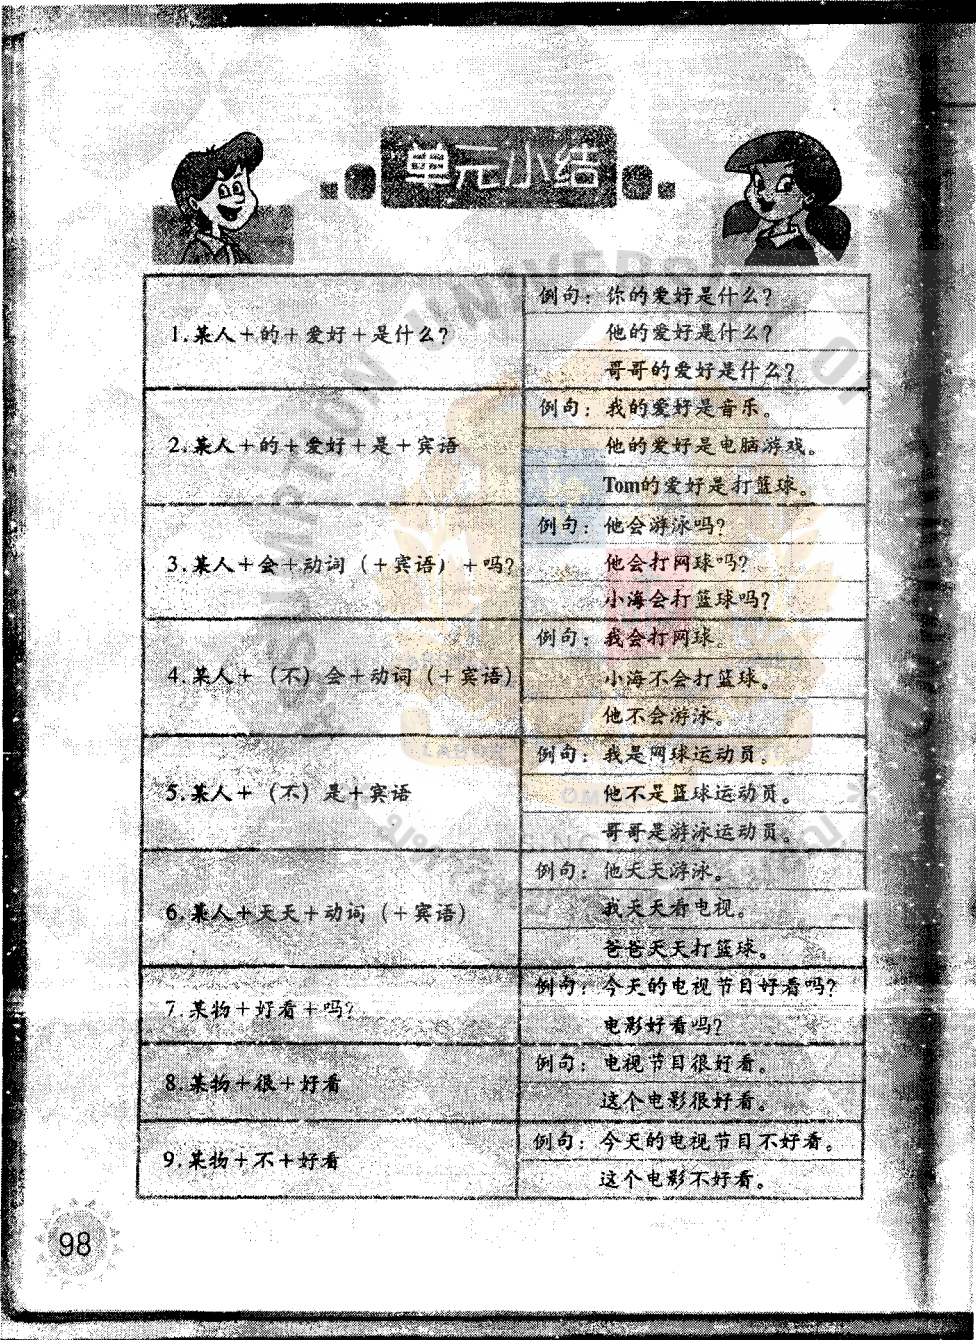 单元小结
1.某人＋的＋爱好＋是什么？
例句：你的爱好是什么？
他的爱好是什么？
哥哥的爱好是什么？
2.某人＋的＋爱好＋是＋宾语
例句：我的爱好是音乐。
他的爱好是电脑游戏。
Tom的爱好是打篮球。
3.某人＋会＋动词（＋宾语）＋吗？
例句：他会游泳吗？
他会打网球吗？
小海会打篮球吗？
4.某人＋（不）会＋动词（＋宾语）
例句：我会打网球。
小海不会打篮球。
他不会游泳。
5.某人＋（不）是＋宾语
例句：我是网球运动员。
他不是篮球运动员。
哥哥是游泳运动员。
6.某人＋天天＋动词（＋宾语）
例句：他天天游泳。
我天天看电视。
爸爸天天打篮球。
7.某物＋好看＋吗？
例句：今天的电视节目好看吗？
电影好看吗？
8.某物＋很＋好看
例句：电视节目很好看。
这个电影很好看。
9.某物＋不＋好看
例句：今天的电视节目不好看。
这个电影不好看。
98